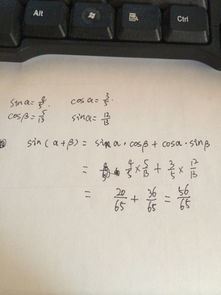 Alt
Ctrl
sinα = 4/5. cosα = 3/5.
cosβ = 5/13 sinα = 12/13
sin(α+β) = sinα·cosβ + cosα·sinβ
= 4/5 × 5/13 + 3/5 × 12/13
= 20/65 + 36/65 = 56/65